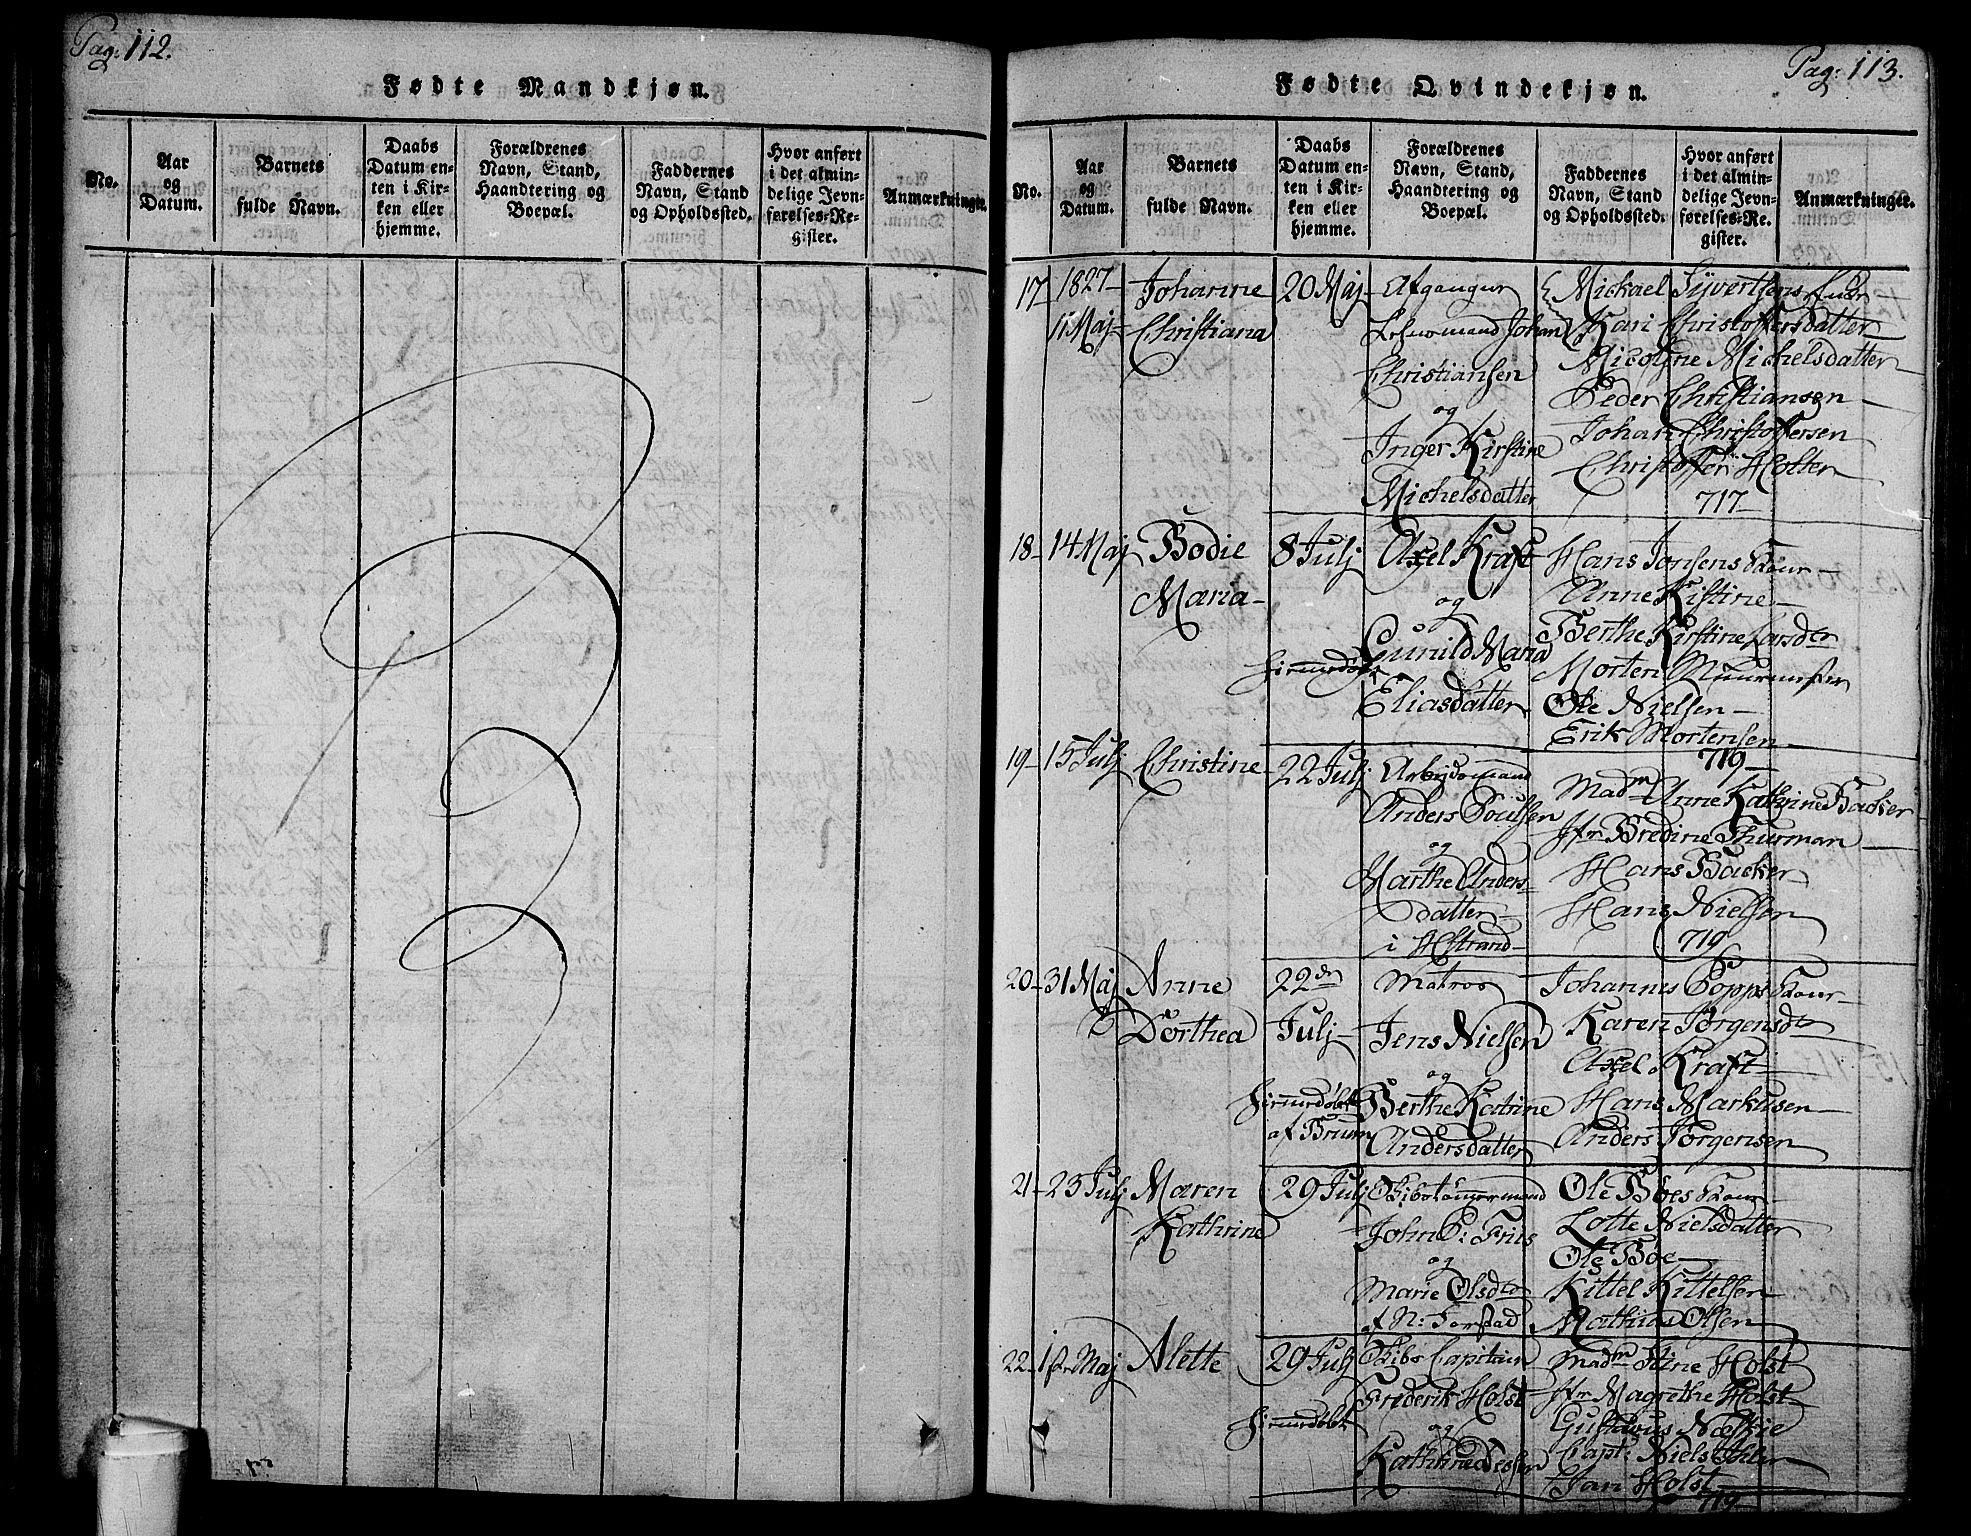 Pag: 112.
Fødte Mandkjøn.
No.
Aar
og
Datum.
Barnets
fulde Navn.
Daabs
Datum en-
ten i Kir-
ken eller
hjemme.
Forældrenes
Navn, Stand,
Haandtering og
Boepæl.
Faddernes
Navn, Stand
og Opholdssted.
Hvor anført
i det almin-
delige Jevn-
førelses-Re-
gister.
Anmærkninger.
Pag: 113.
Fødte Qvindekjøn.
No.
Aar
og
Datum.
Barnets
fulde Navn.
Daabs
Datum en-
ten i Kir-
ken eller
hjemme.
Forældrenes
Navn, Stand,
Haandtering og
Boepæl.
Faddernes
Navn, Stand
og Opholdssted.
Hvor anført
i det almin-
delige Jevn-
førelses-Re-
gister.
Anmærkninger.
17 1827
11 Maj
Johanne
Christiana
20 Maj
Johan
Christiansen
og
Inger Kirstine
Michelsdatter
Mickael Syvertsens
Kari Christoffersdatter
Nicoline Michelsdatter
Peder Christiansen
Johan Christoffersen
Christoffer Holter
717
18 14 Maj
Bodie
Maria
8 Julj
Axel Kraft
og
Gunild Maria
Eliasdatter
Hans Jonsens Kour
Anne Kistine
Berthe Kirstine Larsdtr
Morten
Ole Nielsen
Erik Mortensen
719
19 15 Julj
Christine
22 Julj
Arbejdsmand
Anders Poulsen
og
Marthe Anders
datter
i HStrand
Madm Anne Kathrine Backer
Jfr Bredine Thurman
Hans Backer
Hans Nielsen
719
20 31 Maj
Anne
Dorthea
22de
Julj
Matros
Jens Nielsen
og
Berthe Katrine
Andersdatter
hiemmedøbt
af Bruun
Johannes Popps Kour
Karen Jørgensdtr
Axel Kraft
Hans Markusen
Anders Jørgensen
21 23 Julj
Maren
Kathrine
29 Julj
John P: Friis
og
Marie Olsdtr
Ole Boes Kour
Lotte Nielsdatter
Ole Boe
Kittel Kittelsen
Mathias Olsen
22 1ste Maj
Alette
29 Julj
Skibs Capitain
Frederik Holst
og
hiemmedøbt
Madm Stine Holst
Jfr Magrethe Holst
Gustavus
Capt: Niels
Jan Holst
719